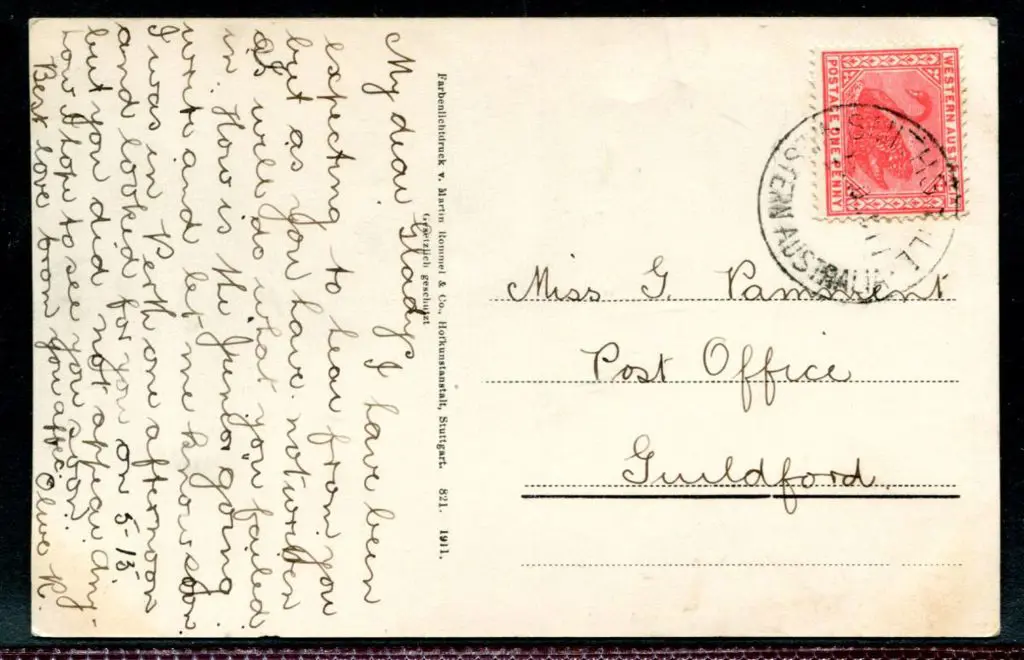 My dear Gladys I have been
expecting to hear from you
but as you have not written
I will do what you failed
in. How is the Junior going
write and let me know soon
I was in Perth one afternoon
and looked for you on 5-15
but you did not appear any-
how I hope to see you soon.
Best love from you affec. Olive R.
Farbenlichtdruck v. Martin Rommel & Co., Hofkunstanstalt, Stuttgart. 821. 1911.
Gesetzlich geschützt
WESTERN AUSTRALIA
POSTAGE ONE PENNY
WESTERN AUSTRALIA
Miss G. Pamment
Post Office
Guildford.